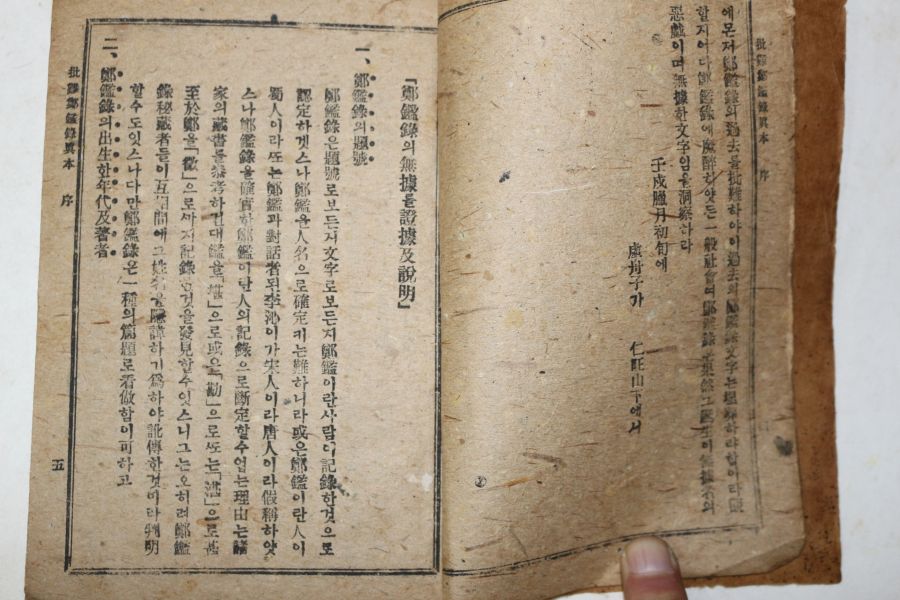 批難鄭鑑錄眞本 序
에몬저鄭鑑錄의過去를批難하야이過去의鄭鑑錄文字는理解하랴함이라
할지어다鄭鑑錄에麻醉하얏든一般社會여鄭鑑錄은果然그
惡戱이며無據한文字임을洞察하라
壬戌臘月初旬에
仁旺山下에서
「鄭鑑錄의無據를證據及說明」
一、鄭鑑錄의題號
鄭鑑錄은題號로보든지文字로보든지鄭鑑이란사람이記錄한것으로
認定하겟스나鄭鑑을人名으로確定키는難하니라或은鄭鑑이란人이
蜀人이라또는鄭鑑과對話者된李沁이가宋人이라唐人이라假稱하얏
스나鄭鑑錄을確實한鄭鑑이란人의記錄으로斷定할수업는理由는諸
家의藏書를參考하건대鑑을「堪」으로或은「勘」으로또는「湛」으로甚
至於鄭을「徵」으로까지記錄한것을發見할수잇스니그는오히려鄭鑑
錄秘藏者들이互相間에그姓名을隱諱하기爲하야訛傳한것이라判明
할수도잇스나다만鄭鑑錄은一種의篇題로看做함이可하고
二、鄭鑑錄의出生한年代及著者
批難鄭鑑錄眞本 序
五